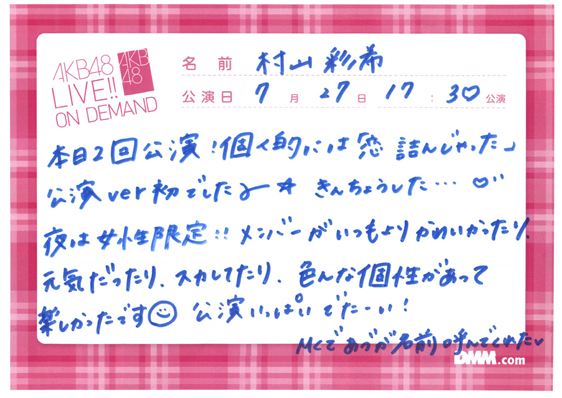 AKB48
LIVE!!
ON DEMAND
AKB
48
名前 村山彩希
公演日 7月27日 17:30公演
本日2回公演!個人的には「恋 詰んじゃった」
公演ver初でしたよー☆ きんちょうした…♡
夜は女性限定!! メンバーがいつもよりかわいかったり、
元気だったり、スカしてたり、色んな個性があって
楽しかったです☺ 公演いっぱいでたーい!
MCであづが名前呼んでくれた♥
DMM.com